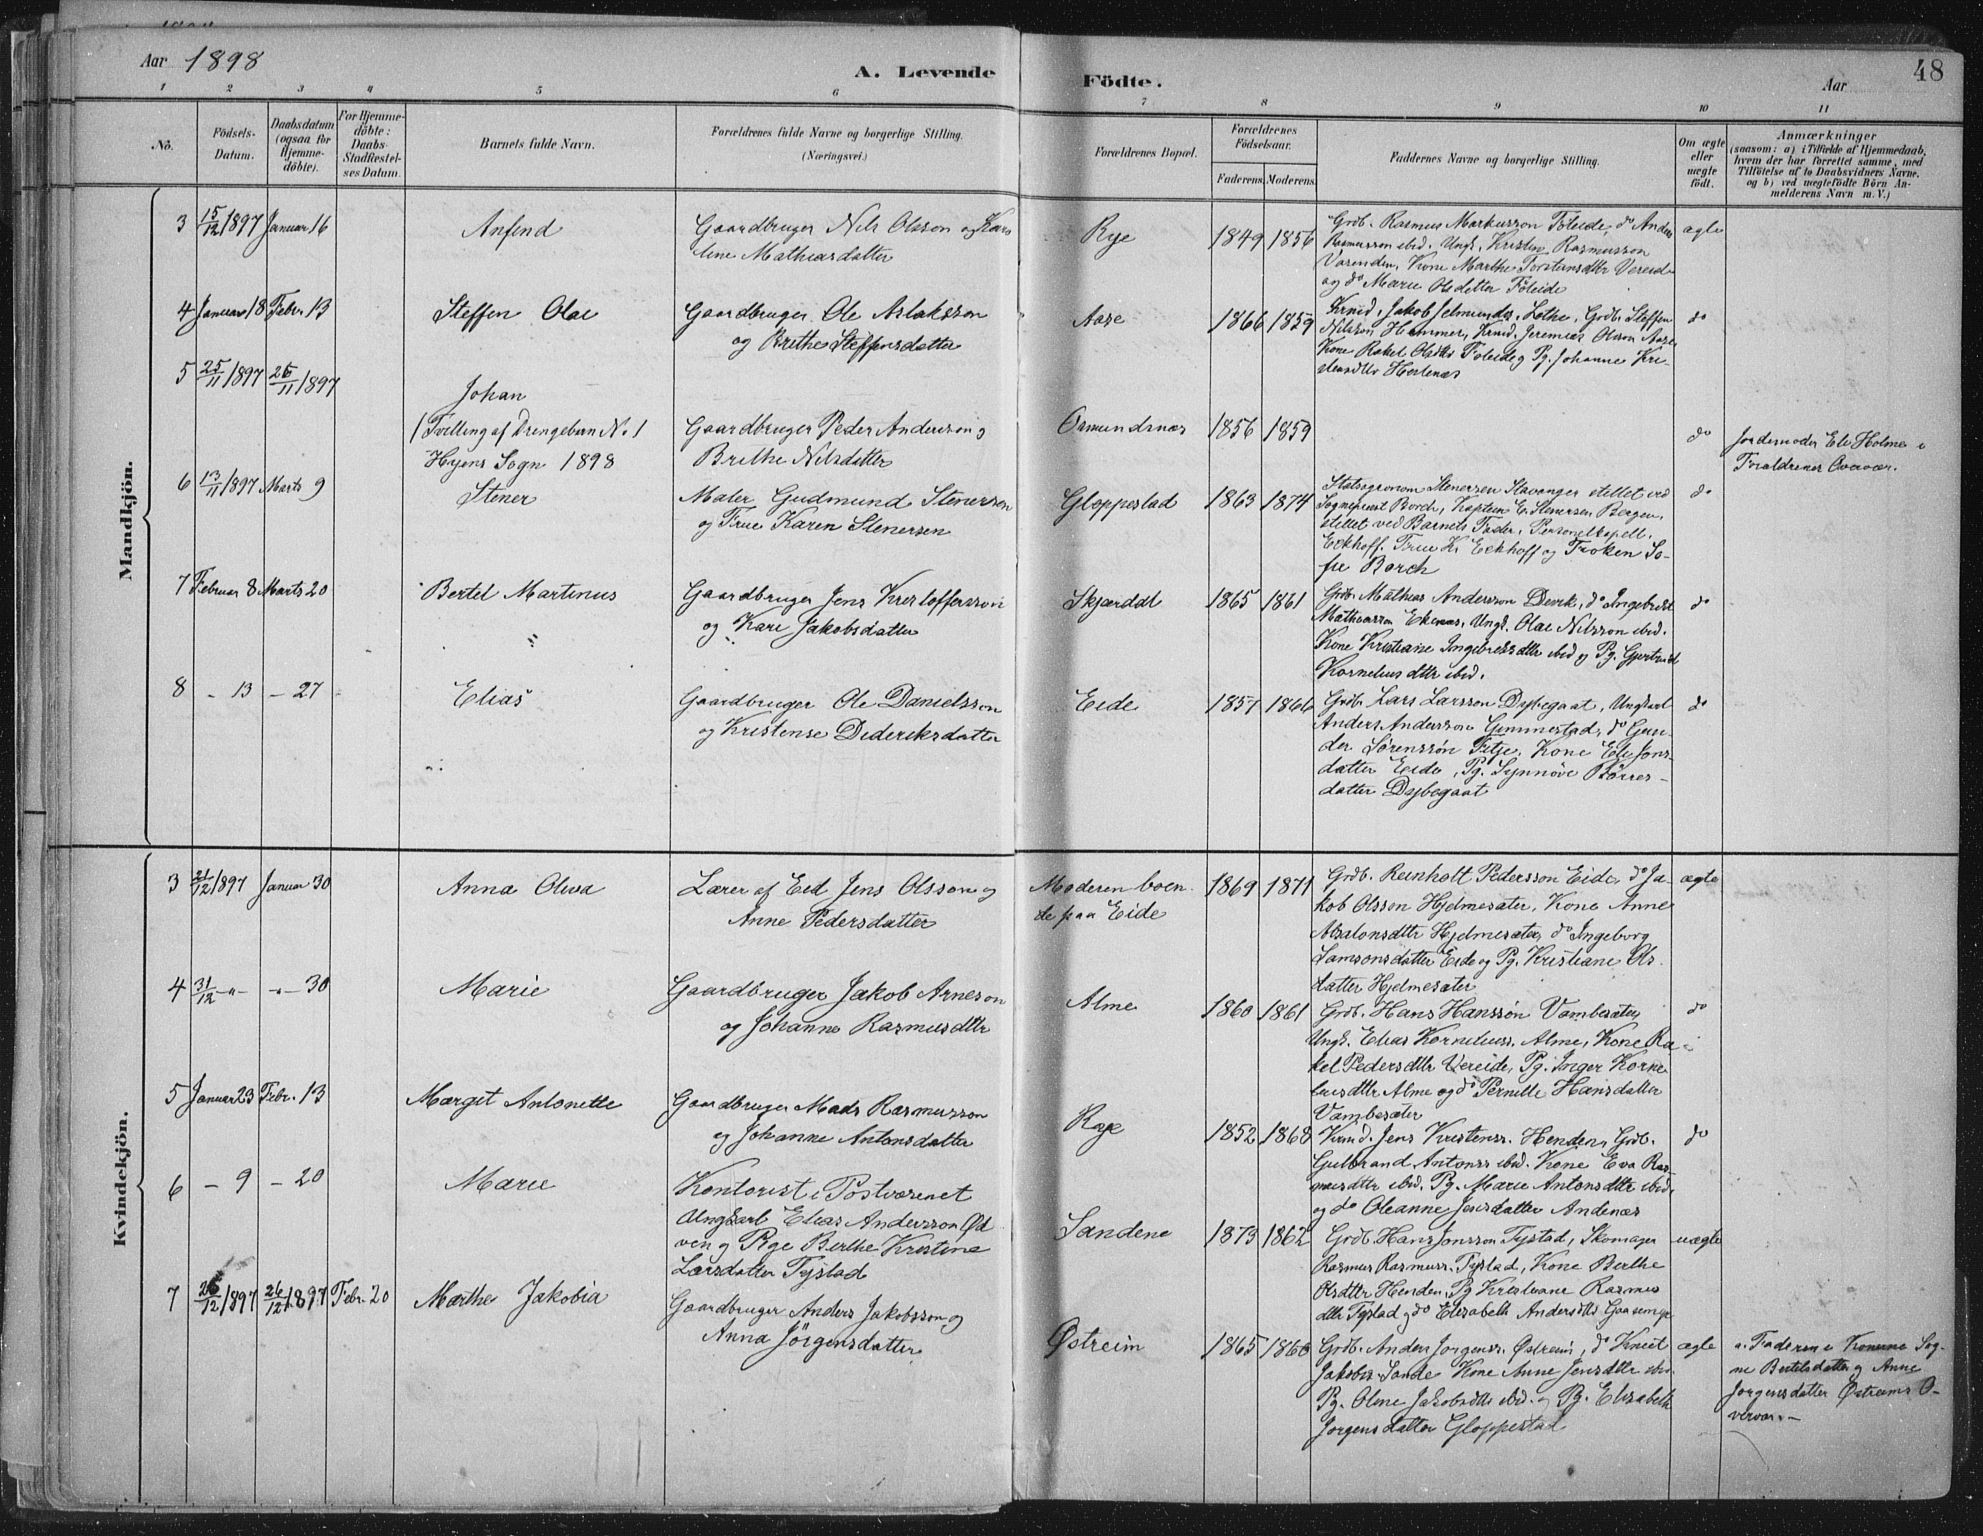 Aar 1898
A. Levende Födte.
Aar
48
1 2 3 4 5 6 7 8 9 10 11
No.
Födsels-Datum.
Daabsdatum (ogsaa for Hjemme-döbte).
For Hjemme-döbte: Daabs-Stadfæstel-ses Datum.
Barnets fulde Navn.
Forældrenes fulde Navne og borgerlige Stilling.
(Næringsvei.)
Forældrenes Bopæl.
Forældrenes Födselsaar.
Faderens. Moderens.
Faddernes Navne og borgerlige Stilling.
Om ægte eller uægte födt.
Anmærkninger
(saasom: a) i Tilfælde af Hjemmedaab,
hvem der har forrettet samme, med
Tilföielse af to Daabsvidners Navne.
og b) ved uægtefödte Börn An-
melderens Navn m. V.)
Mandkjön.
3 15/12 1897 Januar 16
Anfind
Gaardbruger Nils Olsson og Karo
line Mathiasdatter
Rye
1849 1856
Grdb. Rasmus Markusson Föleide, do Anders
Rasmusson ibid. Ungk. Kristen Rasmusson
Varenden, Kone Marthe Torsteinsdttr Vereide
og do Marie Olsdatter Föleide
ægte
4 Januar 18 Febr. 13
Steffen Olai
Gaardbruger Ole Aslaksson
og Brithe Steffensdatter
Aase
1866 1859
Krmd. Jakob Jelmunds. Lothe, Grdb. Steffen
Nilsson Hammer, Krmd. Jeremias Olsson Aase
Kone Rakel Olsdttr Föleide og Pg. Johanne Kri-
stensdttr Hestenæs
do
5 25/11 1897 26/11 1897
Johan
(Tvilling af Drengebarn No. 1
Hyens Sogn 1898
Gaardbruger Peder Andersson og
Brithe Nilsdatter
Osmundsnæs
1856 1859
do
Jordemoder Eli Holme i
Forældrenes Overvær.
6 13/11 1897 Marts 9
Stener
Maler Gudmund Stenersen
og Frue Karen Stenersen
Gloppestad
1863 1874
Statsagronom Stenersen Stavanger stillet ved
Sogneprest Borch, Kaptein E. Stenersen Bergen,
stillet ved Barnets Fader, Personelkapell.
Eckhoff. Frue K. Eckhoff og Fröken So-
fie Borch
do
7 Februar 8 Marts 20
Bertel Martinus
Gaardbruger Jens Kristoffersson
og Kari Jakobsdatter
Skjærdal
1865 1861
Grdb. Mathias Andersson Devik, do Ingebrigt
Mathiasson Ekenæs, Ungk. Olai Nilsson ibid.
Kone Kristiane Ingebretsdttr ibid og Pg. Gjertrud
Korneliusdttr ibid.
do
8 - 13 - 27
Elias
Gaardbruger Ole Danielsson
og Kristense Dideriksdatter
Eide
1857 1866
Grdb. Lars Larsson Dybegaat, Ungkarl
Anders Andersson Gimmestad, do Gun-
der Sörensson Fitje, Kone Eli Jons-
datter Eide, Pg. Synnöve Börres-
datter Dybegaat
do
Kvindekjön.
3 21/12 1897 Januar 30
Anna Oliva
Lærer af Eid Jens Olsson og
Anne Pedersdatter
Moderen boen-
de paa Eide
1869 1871
Grdb. Reinholt Pedersson Eide, do Ja-
kob Olsson Hjelmesæter, Kone Anne
Absalonsdttr Hjelmesæter, do Ingeborg
Samsonsdatter Eide og Pg. Kristiane Ols-
datter Hjelmesæter
ægte
4 31/12 -"- -"- 30
Marie
Gaardbruger Jakob Arneson
og Johanne Rasmusdttr
Alme
1860 1861
Grdb. Hans Hansson Vambesæter,
Ungk. Elias Korneliuss. Alme, Kone Ra-
kel Pedersdttr Vereide, Pg. Inger Korne
liusdttr Alme og do Pernille Hansdatter
Vambesæter
do
5 Januar 23 Febr. 13
Marget Antonette
Gaardbruger Mads Rasmusson
og Johanne Antonsdatter
Rye
1852 1868
Krmd. Jens Kristenss. Henden, Grdb.
Gulbrand Antonss ibid. Kone Eva Ras-
musdttr ibid. Pg. Marie Antonsdttr ibid.
og do Oleanne Jensdatter Andenæs
do
6 - 9 - 20
Marie
Kontorist i Postvæsenet
Ungkarl Elias Andersson Öd
ven og Pige Berthe Kristine
Larsdatter Tystad
Sandene
1873 1862
Grdb. Hans Jonsson Tystad, Skomager
Rasmus Rasmuss. Tystad, Kone Berthe
Olsdttr Henden, Pg Kristiane Rasmus
dttr Tystad og do Elisabeth Andersdttr Gaasemyr
uægte
7 26/12 1897 26/12 1897 Febr. 20
Marthe Jakobia
Gaardbruger Anders Jakobsson og
Anna Jörgensdatter
Østreim
1865 1860
Grdb. Anders Jorgenss. Østreim, do Knut
Jakobss. Sande Kone Anne Jensdttr ibid
Pg. Oline Jakobsdttr ibid. og Pg. Elisabeth
Jorgensdatter Gloppestad
ægte
a. Faderen i Konerne Sig-
ne Bertelsdatter og Anne
Jorgensdatter Østreims O-
vervær.-